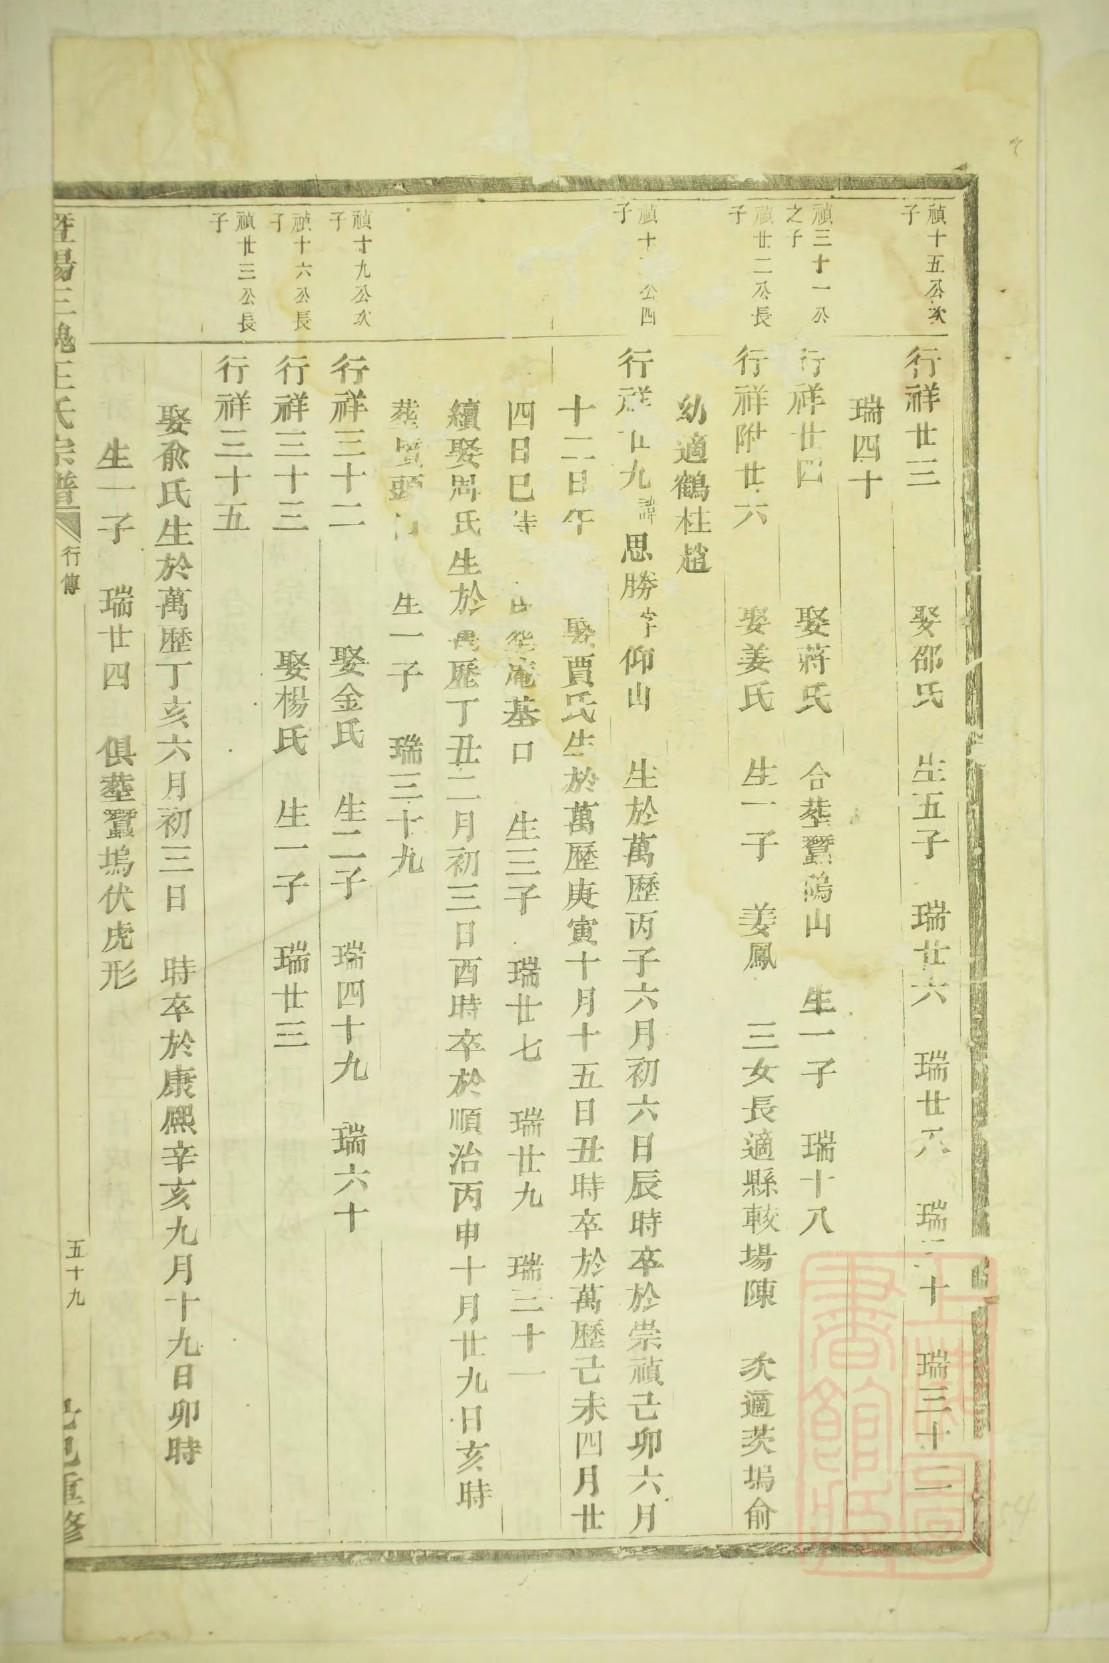 禎十五公次子
行祥廿三 娶邵氏 生五子 瑞廿六 瑞廿八 瑞三十 瑞三十二
瑞四十
禎三十一公之子
行祥廿四 娶蔣氏 合塟蠶塢山 生一子 瑞十八
禎廿二公長子
行祥附廿六 娶姜氏 生一子 姜鳳 三女長適縣較場陳 次適茨塢俞
幼適鶴桂趙
禎十 公四子
行祥廿九諱思勝字仰山 生於萬歷丙子六月初六日辰時卒於崇禎己卯六月
十二日午 娶賈氏生於萬歷庚寅十月十五日丑時卒於萬歷己未四月廿
四日巳時 庵基口 生三子 瑞廿七 瑞廿九 瑞三十一
續娶周氏生於萬歷丁丑二月初三日酉時卒於順治丙申十月廿九日亥時
塟 頭 生一子 瑞三十九
禎十九公次子
行祥三十二 娶金氏 生二子 瑞四十九 瑞六十
禎十六公長子
行祥三十三 娶楊氏 生一子 瑞廿三
禎廿三公長子
行祥三十五
娶俞氏生於萬歷丁亥六月初三日 時卒於康熈辛亥九月十九日卯時
生一子 瑞廿四 俱塟蠶塢伏虎形
暨陽三槐王氏宗譜 行傳 五十九 己巳重修
上海圖書館藏